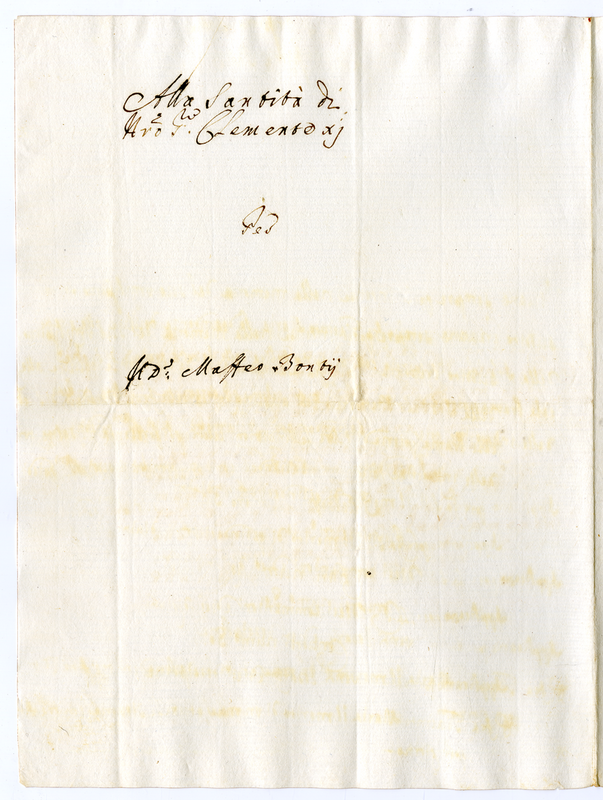 Alla Santità di
Nro Sre Clemente xj
Per
Matteo Bontij